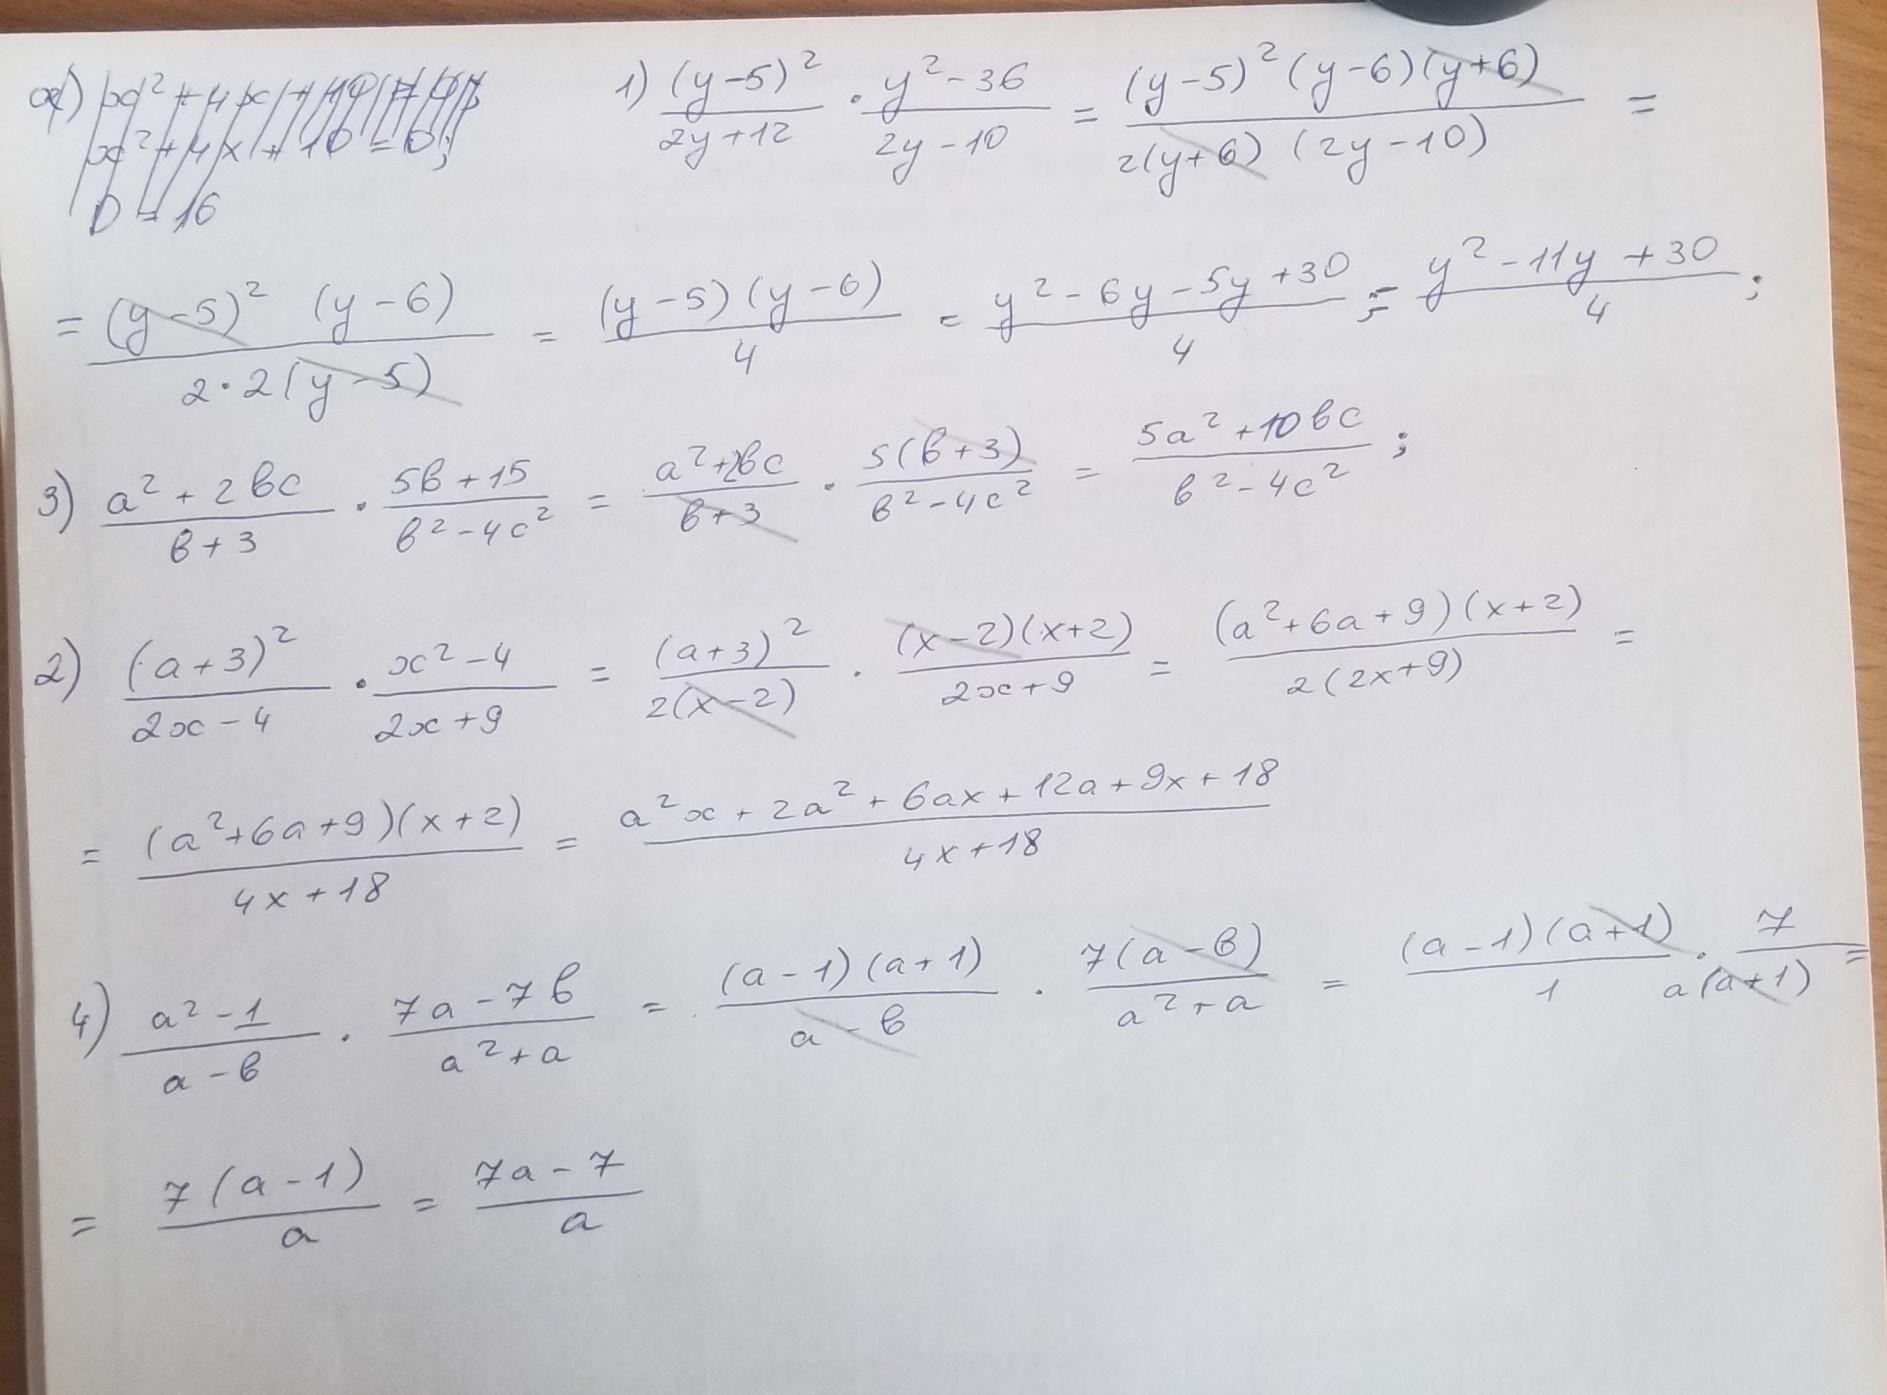 x² + 4x + 10
x² + 4x + 10 = 0;
D = 16
1) (y-5)²/(2y+12) · (y²-36)/(2y-10) = (y-5)²(y-6)(y+6)/(2(y+6)(2y-10)) =
= (y-5)²(y-6)/(2·2(y-5)) = (y-5)(y-6)/4 = (y²-6y-5y+30)/4 = (y²-11y+30)/4;
3) (a²+2bc)/(b+3) · (5b+15)/(b²-4c²) = (a²+2bc)/(b+3) · 5(b+3)/(b²-4c²) = (5a²+10bc)/(b²-4c²);
2) (a+3)²/(2x-4) · (x²-4)/(2x+9) = (a+3)²/(2(x-2)) · (x-2)(x+2)/(2x+9) = (a²+6a+9)(x+2)/(2(2x+9)) =
= (a²+6a+9)(x+2)/(4x+18) = (a²x+2a²+6ax+12a+9x+18)/(4x+18)
4) (a²-1)/(a-b) · (7a-7b)/(a²+a) = (a-1)(a+1)/(a-b) · 7(a-b)/(a²+a) = (a-1)(a+1)/1 · 7/(a(a+1)) =
= 7(a-1)/a = (7a-7)/a